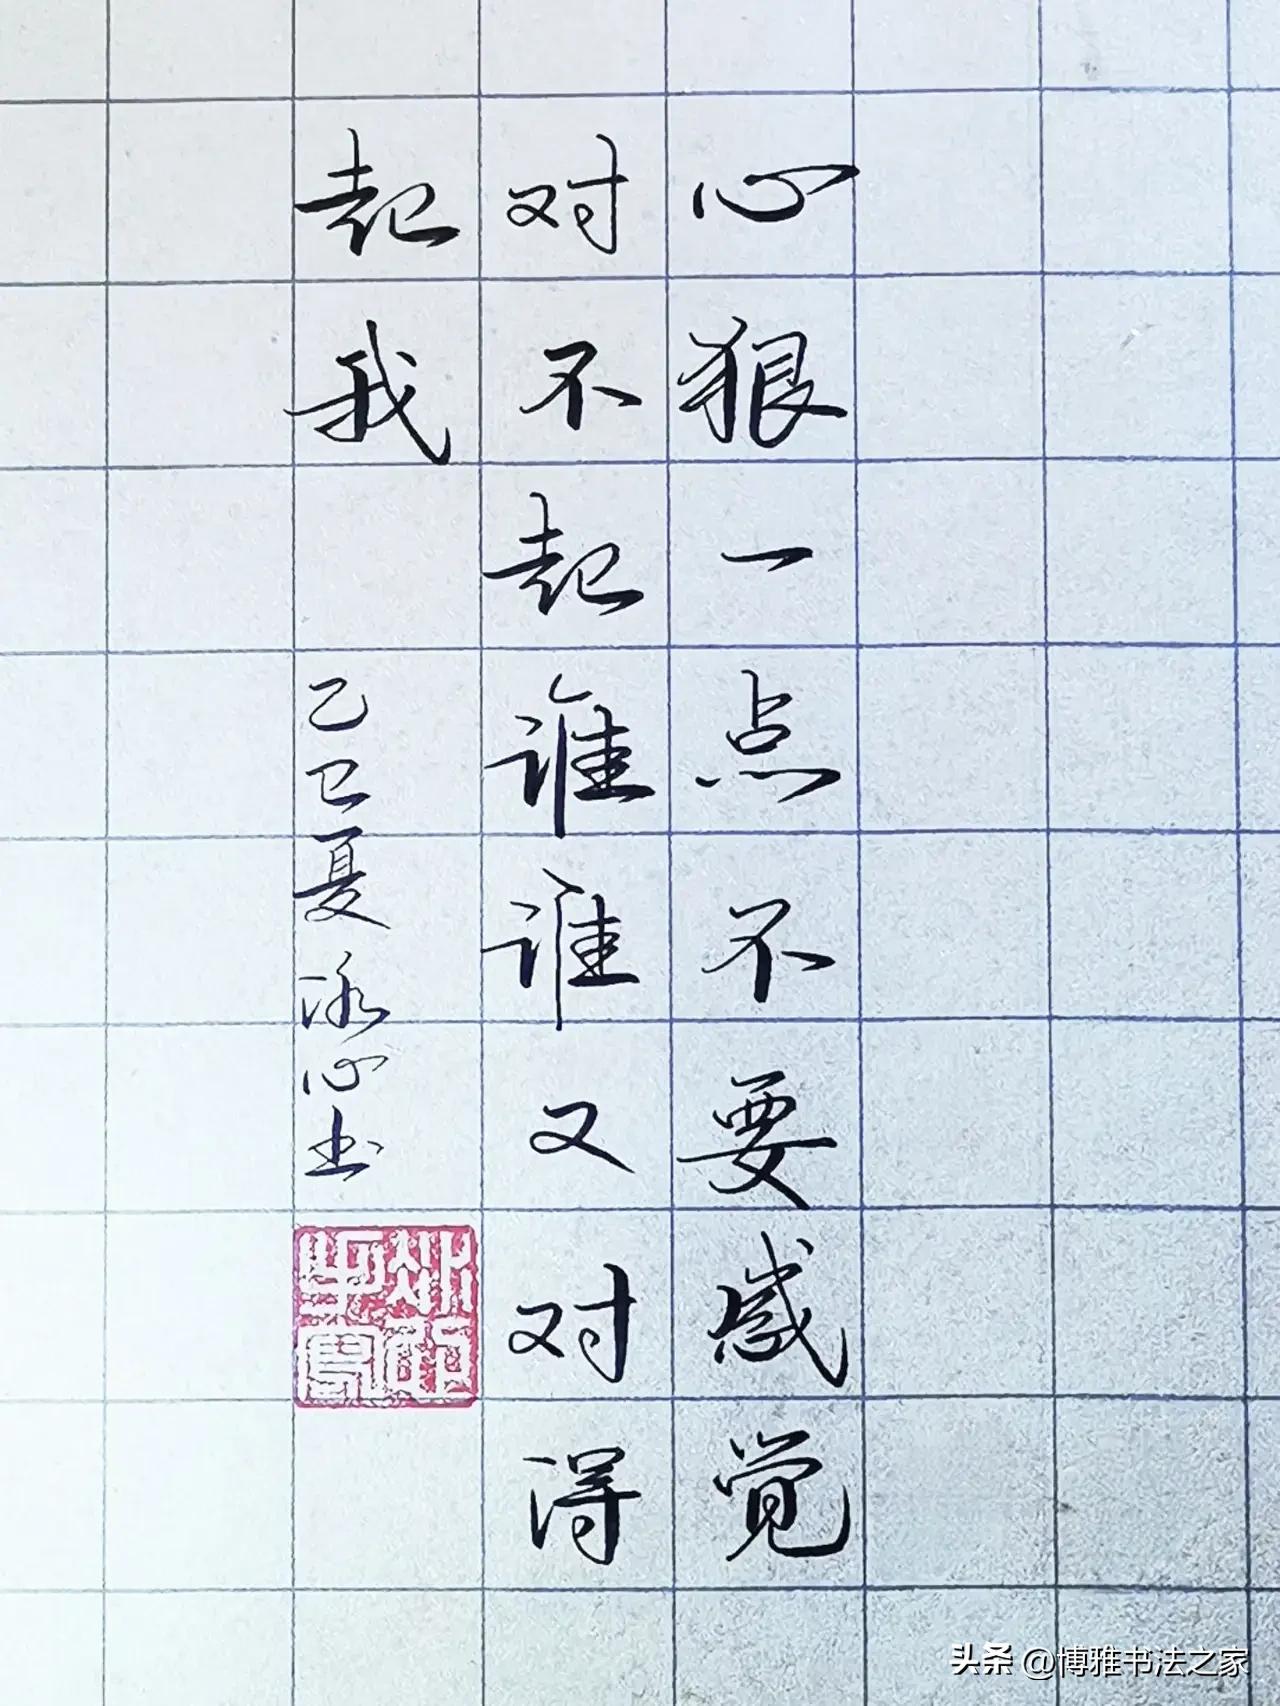 心狠一点不要感觉
对不起谁谁又对得
起我
乙巳夏冰心书
头条 @博雅书法之家